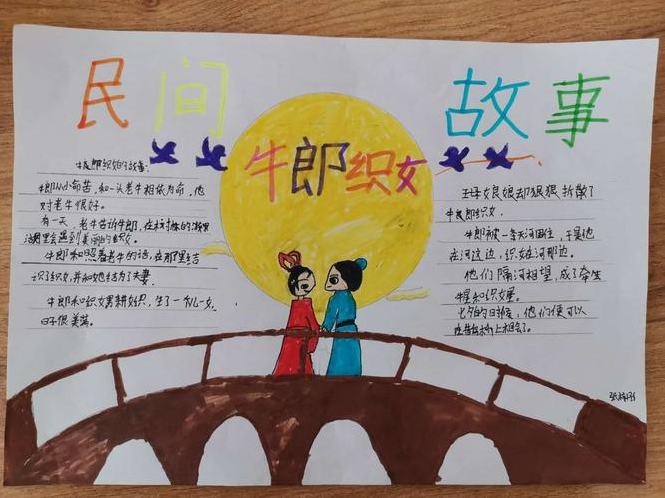 民间故事
牛郎织女
牛郎织女的故事:
牛郎从小命苦,和一头老牛相依为命,他
对老牛很好。
有一天,老牛告诉牛郎,在村东的湖里
湖里会遇到美丽的织女。
牛郎和照着老牛的话,在那里结
识了织女,并和她结为了夫妻。
牛郎和织女男耕女织,生了一个儿一女,
日子很美满。
王母娘娘却狠狠拆散了
牛郎织女。
牛郎被一条天河围住,于是他
在河这边,织女在河那边。
他们隔河相望,成了牵牛
星和织女星。
七夕的日时候,他们便可以
在鹊桥上相会了。